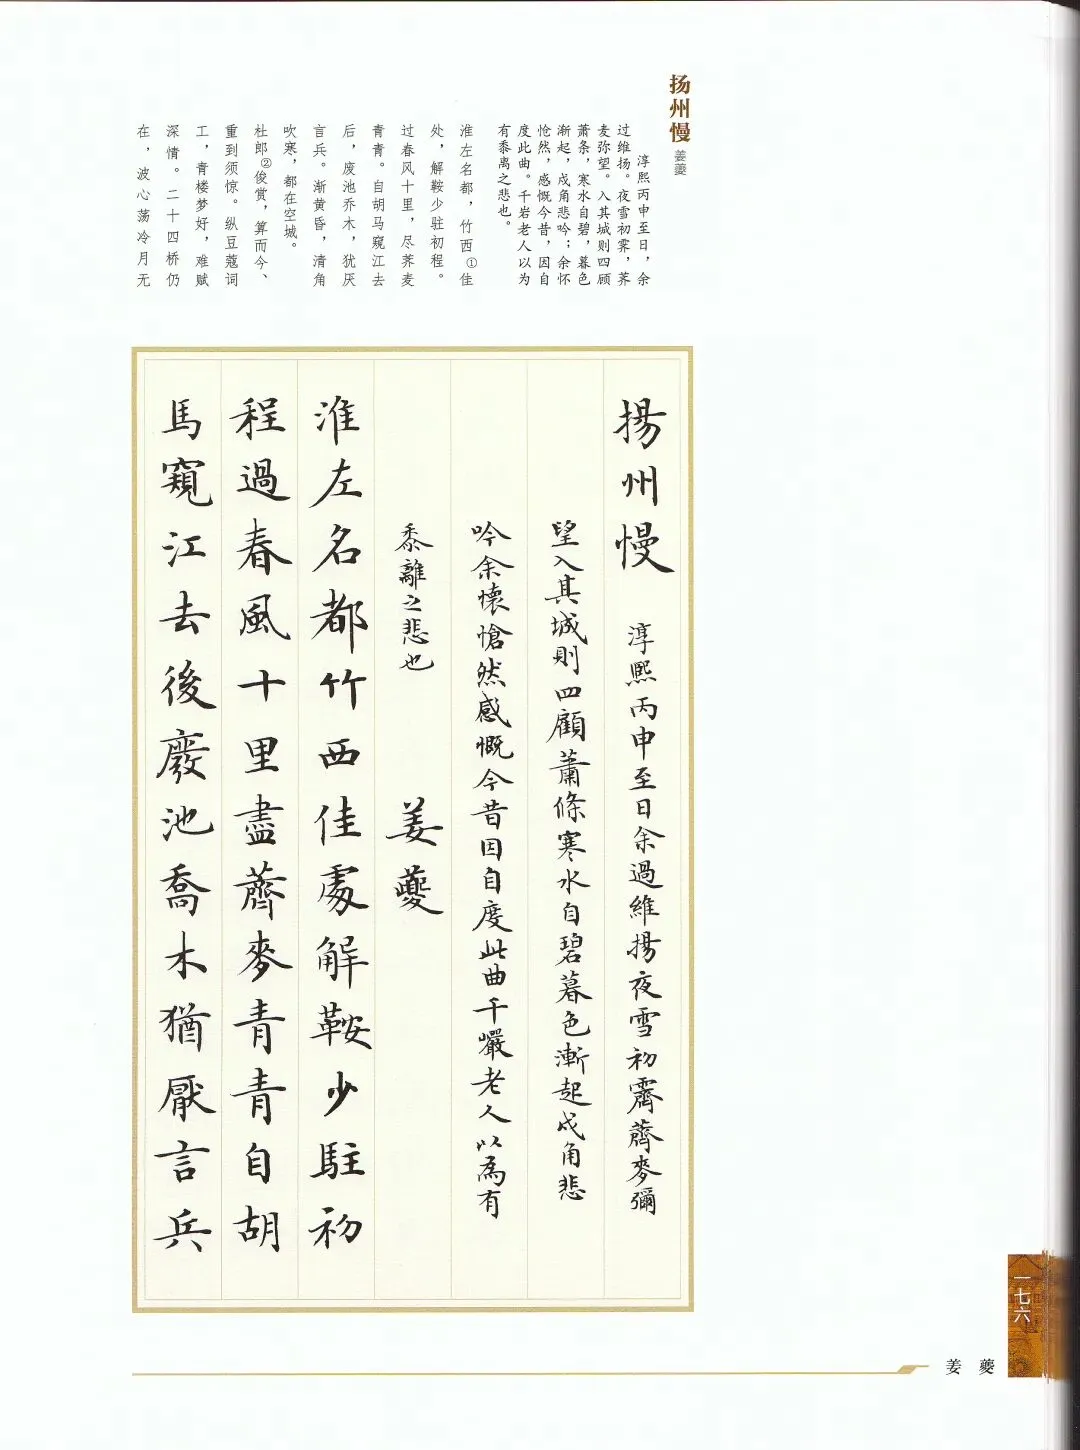 扬州慢
姜夔
淳熙丙申至日，余
过维扬。夜雪初霁，荠
麦弥望。入其城则四顾
萧条，寒水自碧，暮色
渐起，戍角悲吟；余怀
怆然，感慨今昔，因自
度此曲。千岩老人以为
有黍离之悲也。
淮左名都，竹西①佳
处，解鞍少驻初程。
过春风十里，尽荠麦
青青。自胡马窥江去
后，废池乔木，犹厌
言兵。渐黄昏，清角
吹寒，都在空城。
杜郎②俊赏，算而今、
重到须惊。纵豆蔻词
工，青楼梦好，难赋
深情。二十四桥仍
在，波心荡冷月无
揚州慢 淳熙丙申至日余過維揚夜雪初霽薺麥彌
望入其城則四顧蕭條寒水自碧暮色漸起戍角悲
吟余懷愴然感慨今昔因自度此曲千巖老人以為有
黍離之悲也 姜夔
淮左名都竹西佳處解鞍少駐初
程過春風十里盡薺麥青青自胡
馬窺江去後廢池喬木猶厭言兵
一七六
姜夔